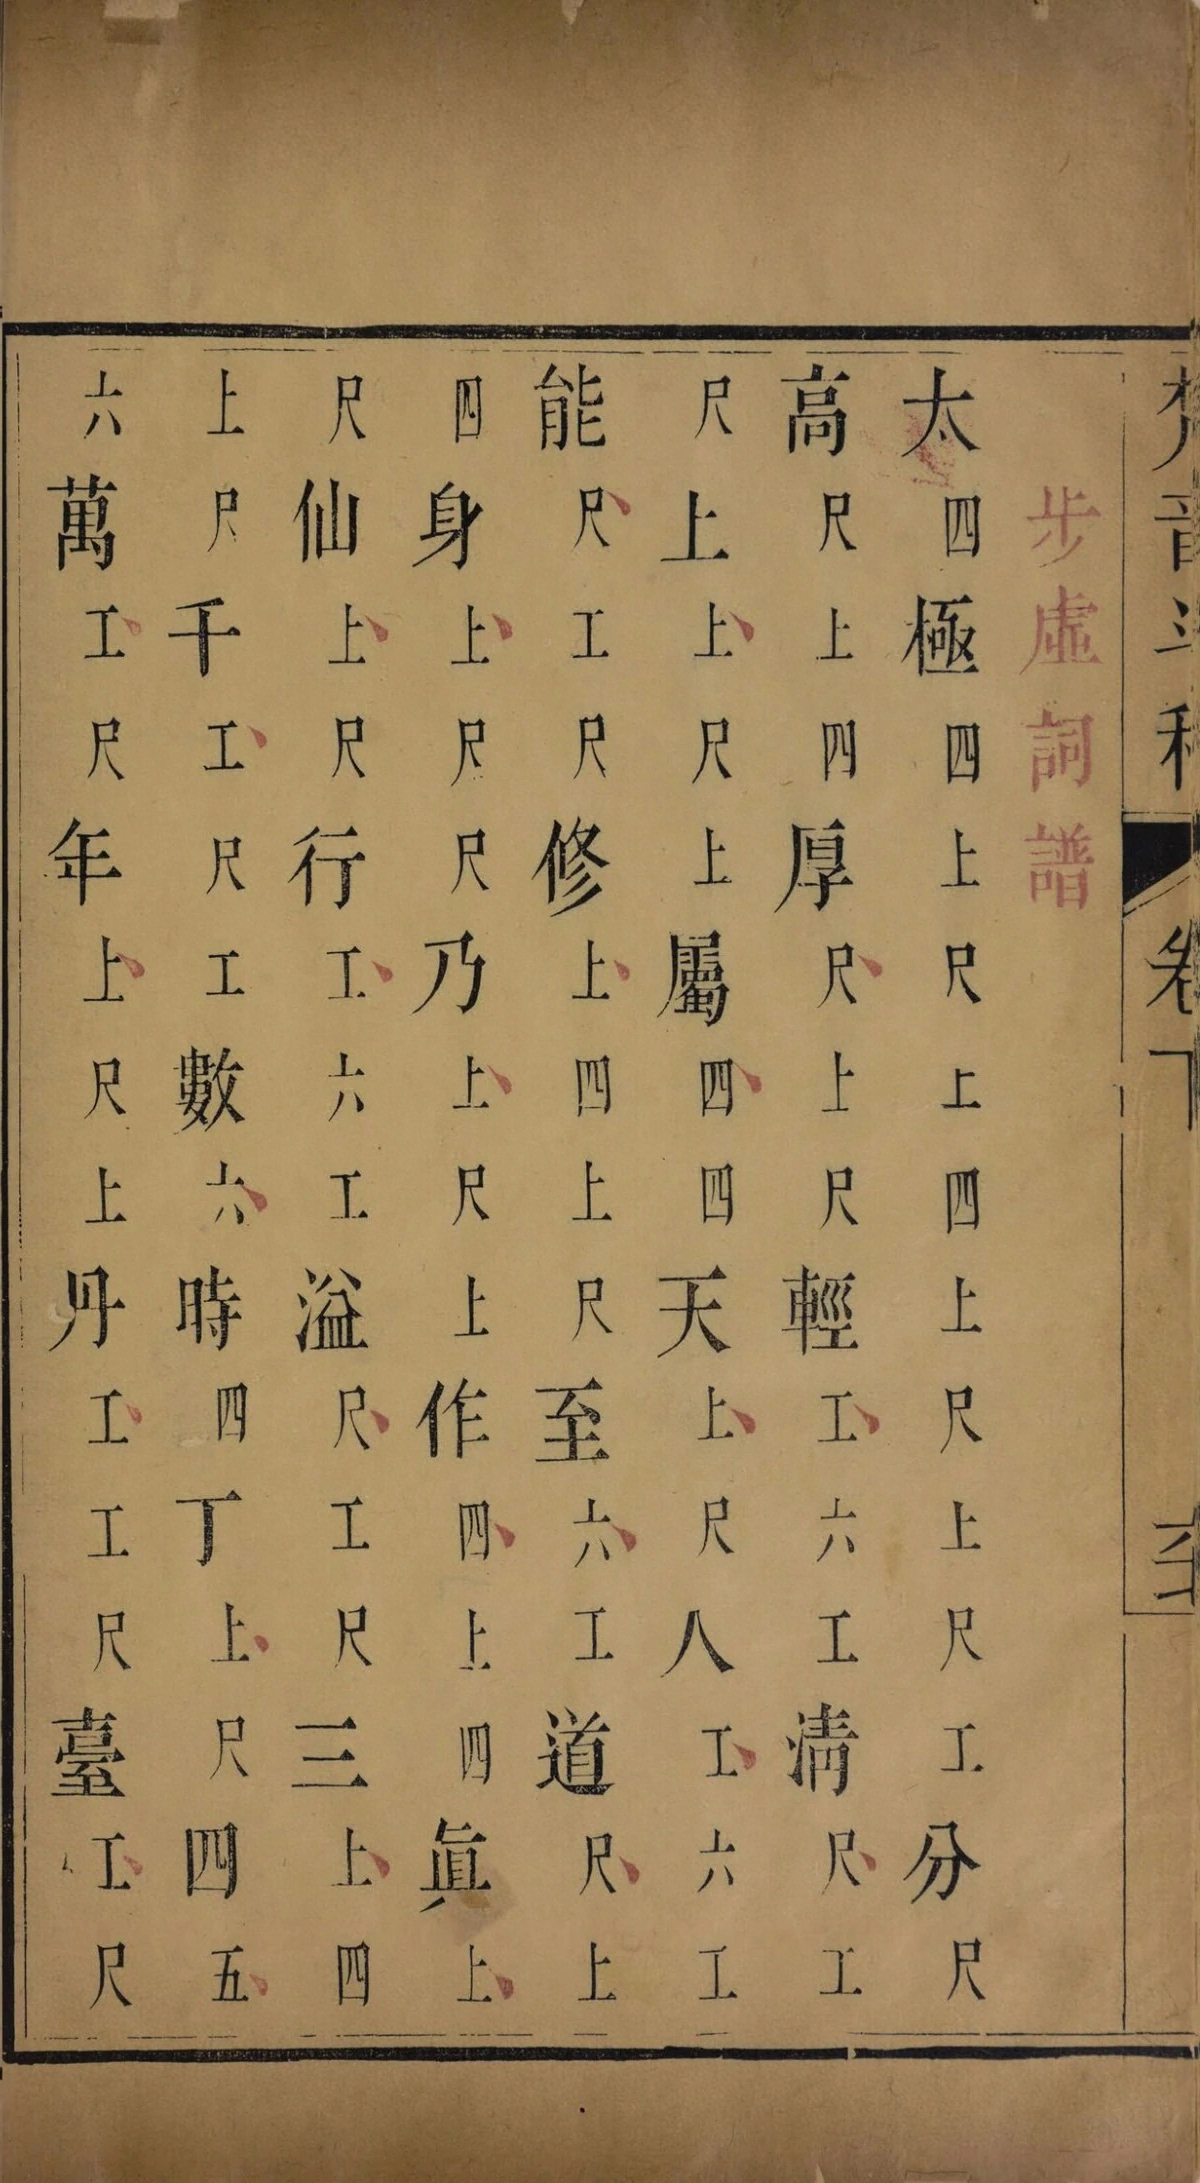 梵音斗科 卷下
步虛詞譜
太四極四上尺上四上尺上尺工分尺
高尺上四厚尺上尺輕工六工淸尺工
尺上上尺上屬四四天上尺人工六工
能尺工尺修上四上尺至六工道尺上
四身上尺尺乃上尺上作四上四眞上
尺仙上尺行工六工溢尺工尺三上四
上尺千工尺工數六時四丁上尺四五
六萬工尺年上尺上丹工工尺臺工尺